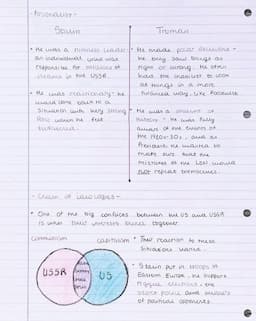 - Personalities -
Stalin
Truman
• He was a ruthless leader - an individual who was
responsible for millions of
deaths in the USSR.
• He was reactionary - he
would come back to a
situation with very strong
force when he felt
threatened.
• He made polar decisions -
he only saw things as
right or wrong. He often
had the inability to look
at things in a more
balanced way, like Roosevelt
• He was a student of
history - he was fully
aware of the events of
the 1920s-30s, and as
President he wanted to
make sure that the
mistakes of the
not repeat themselves.
- Clash of Ideologies -
• One of the big conflicts between the US and USSR
is when their interests bump together.
Communism
capitalism
USSR
US
• Their reaction to these
situations varied.
• Stalin put in troops in
Eastern Europe. He supports
rigged elections, the
secret police and arrests
of political opponents.